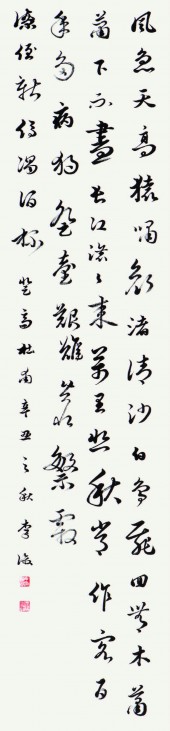 風急天高猿嘯哀渚清沙白鳥飛回木蕭
蕭下不盡長江滾々來萬里悲秋常作客百
年多病獨登臺艱難苦恨繁霜
潦倒新停濁酒杯 登高杜甫辛丑之秋李